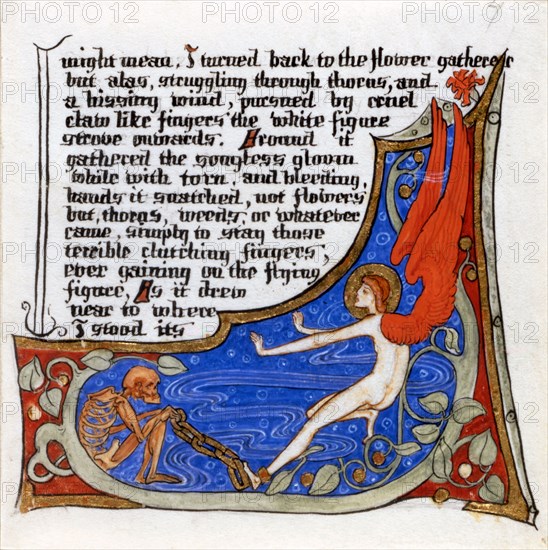 might mean. I turned back to the flower gatherer
but alas, struggling through thorns, and
a hissing wind, pursued by cruel
claw like fingers the white figure
strove onwards. Around it
gathered the songless gloom
while with torn, and bleeding,
hands it snatched, not flowers
but, thorns, weeds, or whatever
came, simply to stay those
terrible clutching fingers,
ever gaining on the flying
figure, As it drew
near to where
I stood its